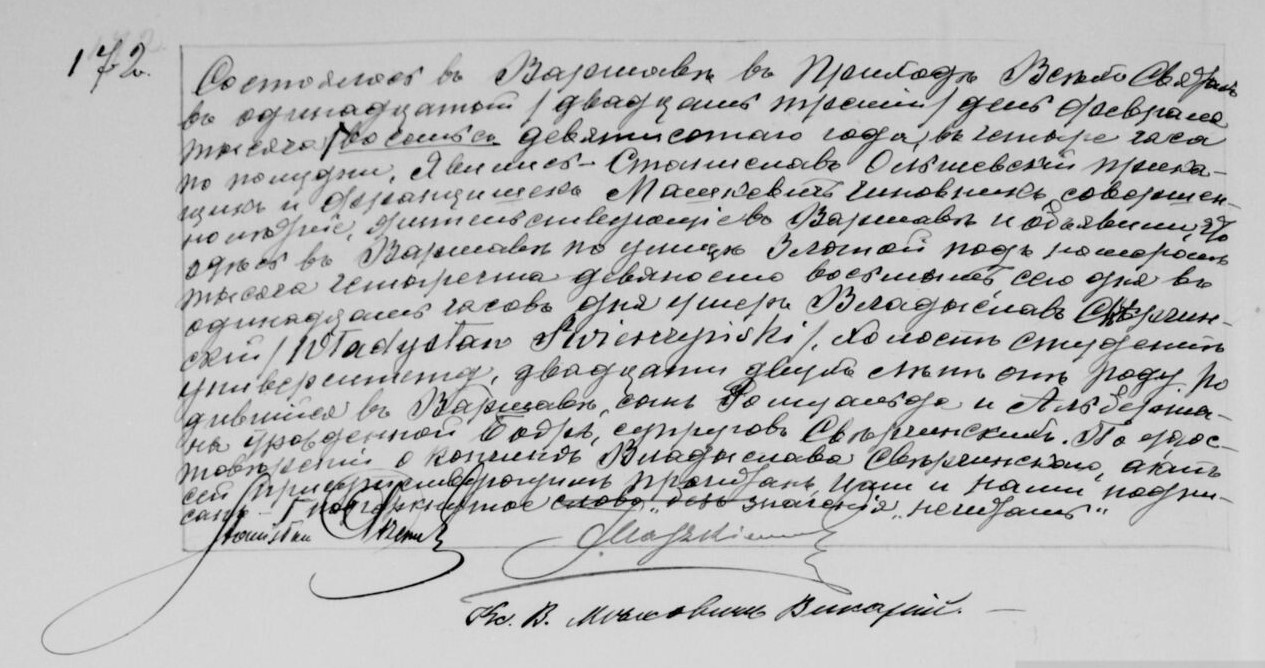 172.
Состоялось въ Варшавѣ въ Приходѣ Всѣхъ Святыхъ
въ одинадцатый / двадцать третій / день февраля
тысяча восемьсо девятисотаго года, въ четыре часа
по полудни. Явились Станиславъ Ольшевскій прика-
щикъ и Францишекъ Машкевичъ чиновникъ, совершен-
нолѣтніе, жительствующіе въ Варшавѣ и объявили, что
здѣсь въ Варшавѣ по улицѣ Злотой подъ номеромъ
тысяча четыреста девяносто восьмымъ, сего дня въ
одинадцать часовъ дня умеръ Владыславъ Свѣрчин-
скій / Władysław Świerczyński /, холостъ студентъ
университета, двадцати двухъ лѣтъ отъ роду, ро
дившійся въ Варшавѣ, сынъ Ромуальда и Альберти-
ны урожденной супруговъ Свѣрчинскихъ. По удос-
товѣреніи о кончинѣ Владыслава Свѣрчинскаго, актъ
сей присутствующимъ прочитанъ, ими и нами подпи-
санъ. – Подчеркнутое слово безъ значенія „нечитать“
Stanisław
FMaszkiewicz
Кс. В. Викарій. –